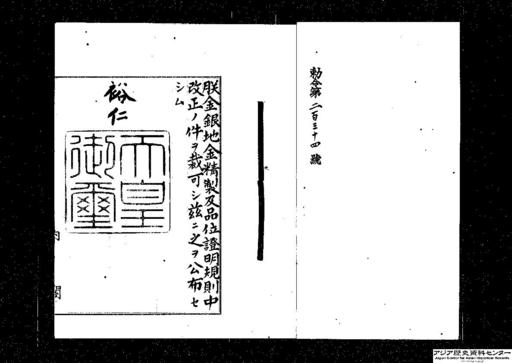 勅令第二百三十四號
朕金銀地金精製及品位證明規則中
改正ノ件ヲ裁可シ茲ニ之ヲ公布セ
シム
裕仁
天皇
御璽
内閣
アジア歴史資料センター
Japan Center for Asian Historical Records